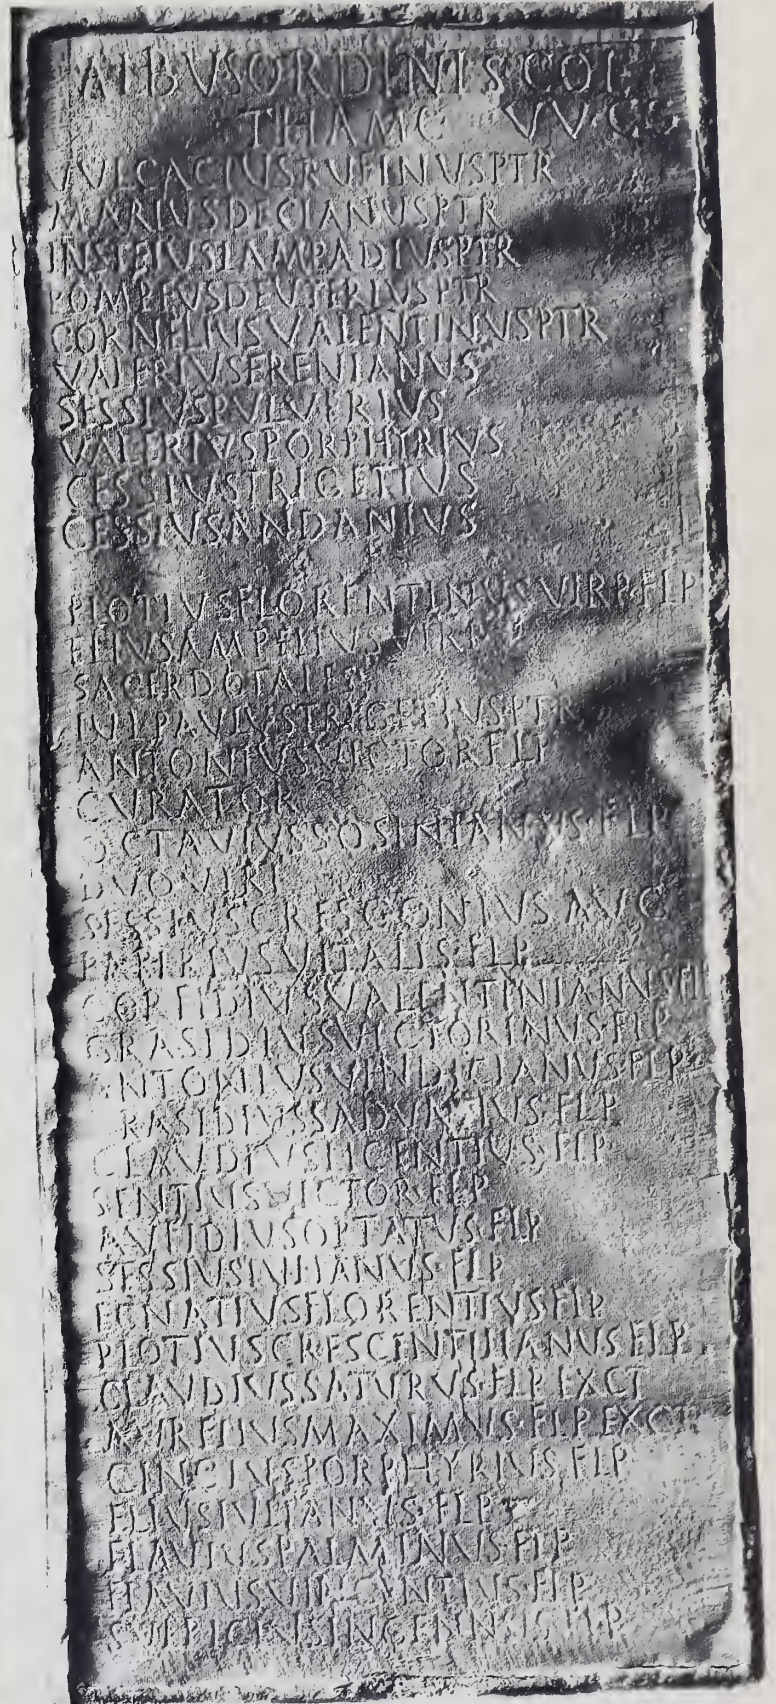 ALBVSORDINISCOL
THAMC VV CC
VVLCACIVSRVFINVSPTR
MARIVSDECIANVSPTR
INSTEIVSLAMPADIVSPTR
POMPEIVSDEVTERIVSPTR
CORNELIVSVALENTINVSPTR
VALERIVSERENIANVS
SESSIVSPVLVERIVS
VALERIVSPORPHYRIVS
CESSIVSTRIGETIVS
CESSIVSANDANIVS
PLOTIVSFLORENTINVSVIRP·FLP
ELIVSAMPELIVSVIRP
SACERDOTALES
IVLPAVLVSTRYGETIVSPTR
ANTONIVSVICTORFLP
CVRATOR
OCTAVIVSSOSINIANVS·FLP
DVOVIRI
SESSIVSCRESCONIVS AVG
PAPIRIVSVITALIS·FLP
CORFIDIVSVALENTINIANVSFLP
GRASIDIVSVICTORINVS·FLP
NTONIVSVINDICIANVS·FLP
RASIDIVSSADVNTIVS·FLP
CLAVDIVSLICENTIVS·FLP
SENTIVSVICTOR·FLP
AVFIDIVSOPTATVS·FLP
SESSIVSIVLIANVS·FLP
EGNATIVSFLORENTIVS·FLP
PLOTIVSCRESCENTILIANVS·FLP
CLAVDIVSSATVRVS·FLP EXCT
AVRELIVSMAXIMVS·FLP EXCT
CINCIVSPORPHYRIVS·FLP
ELIVSIVLIANVS·FLP
FLAVIVSPALMINVS·FLP
FLAVIVSVINCANTIVS·FLP
SVLPICIVSINGENNVS·FLP